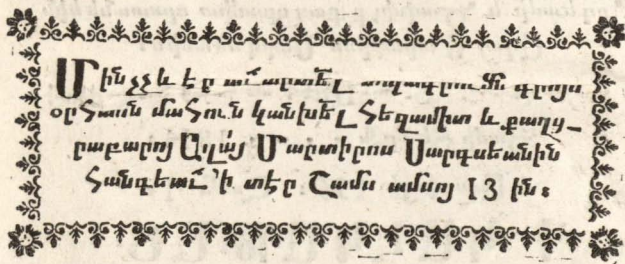 Մինչչև էր աւ՟արտել տպագրու՟ն գրոյս
օր հասն մահուն կանխել հեզամիտ և քաղց֊
րաբարոյ Աղայ Մարտիրոս Սարգսեանին
հանգեաւ՟ ՚ի տէր Շամս ամսոյ 13 ին։